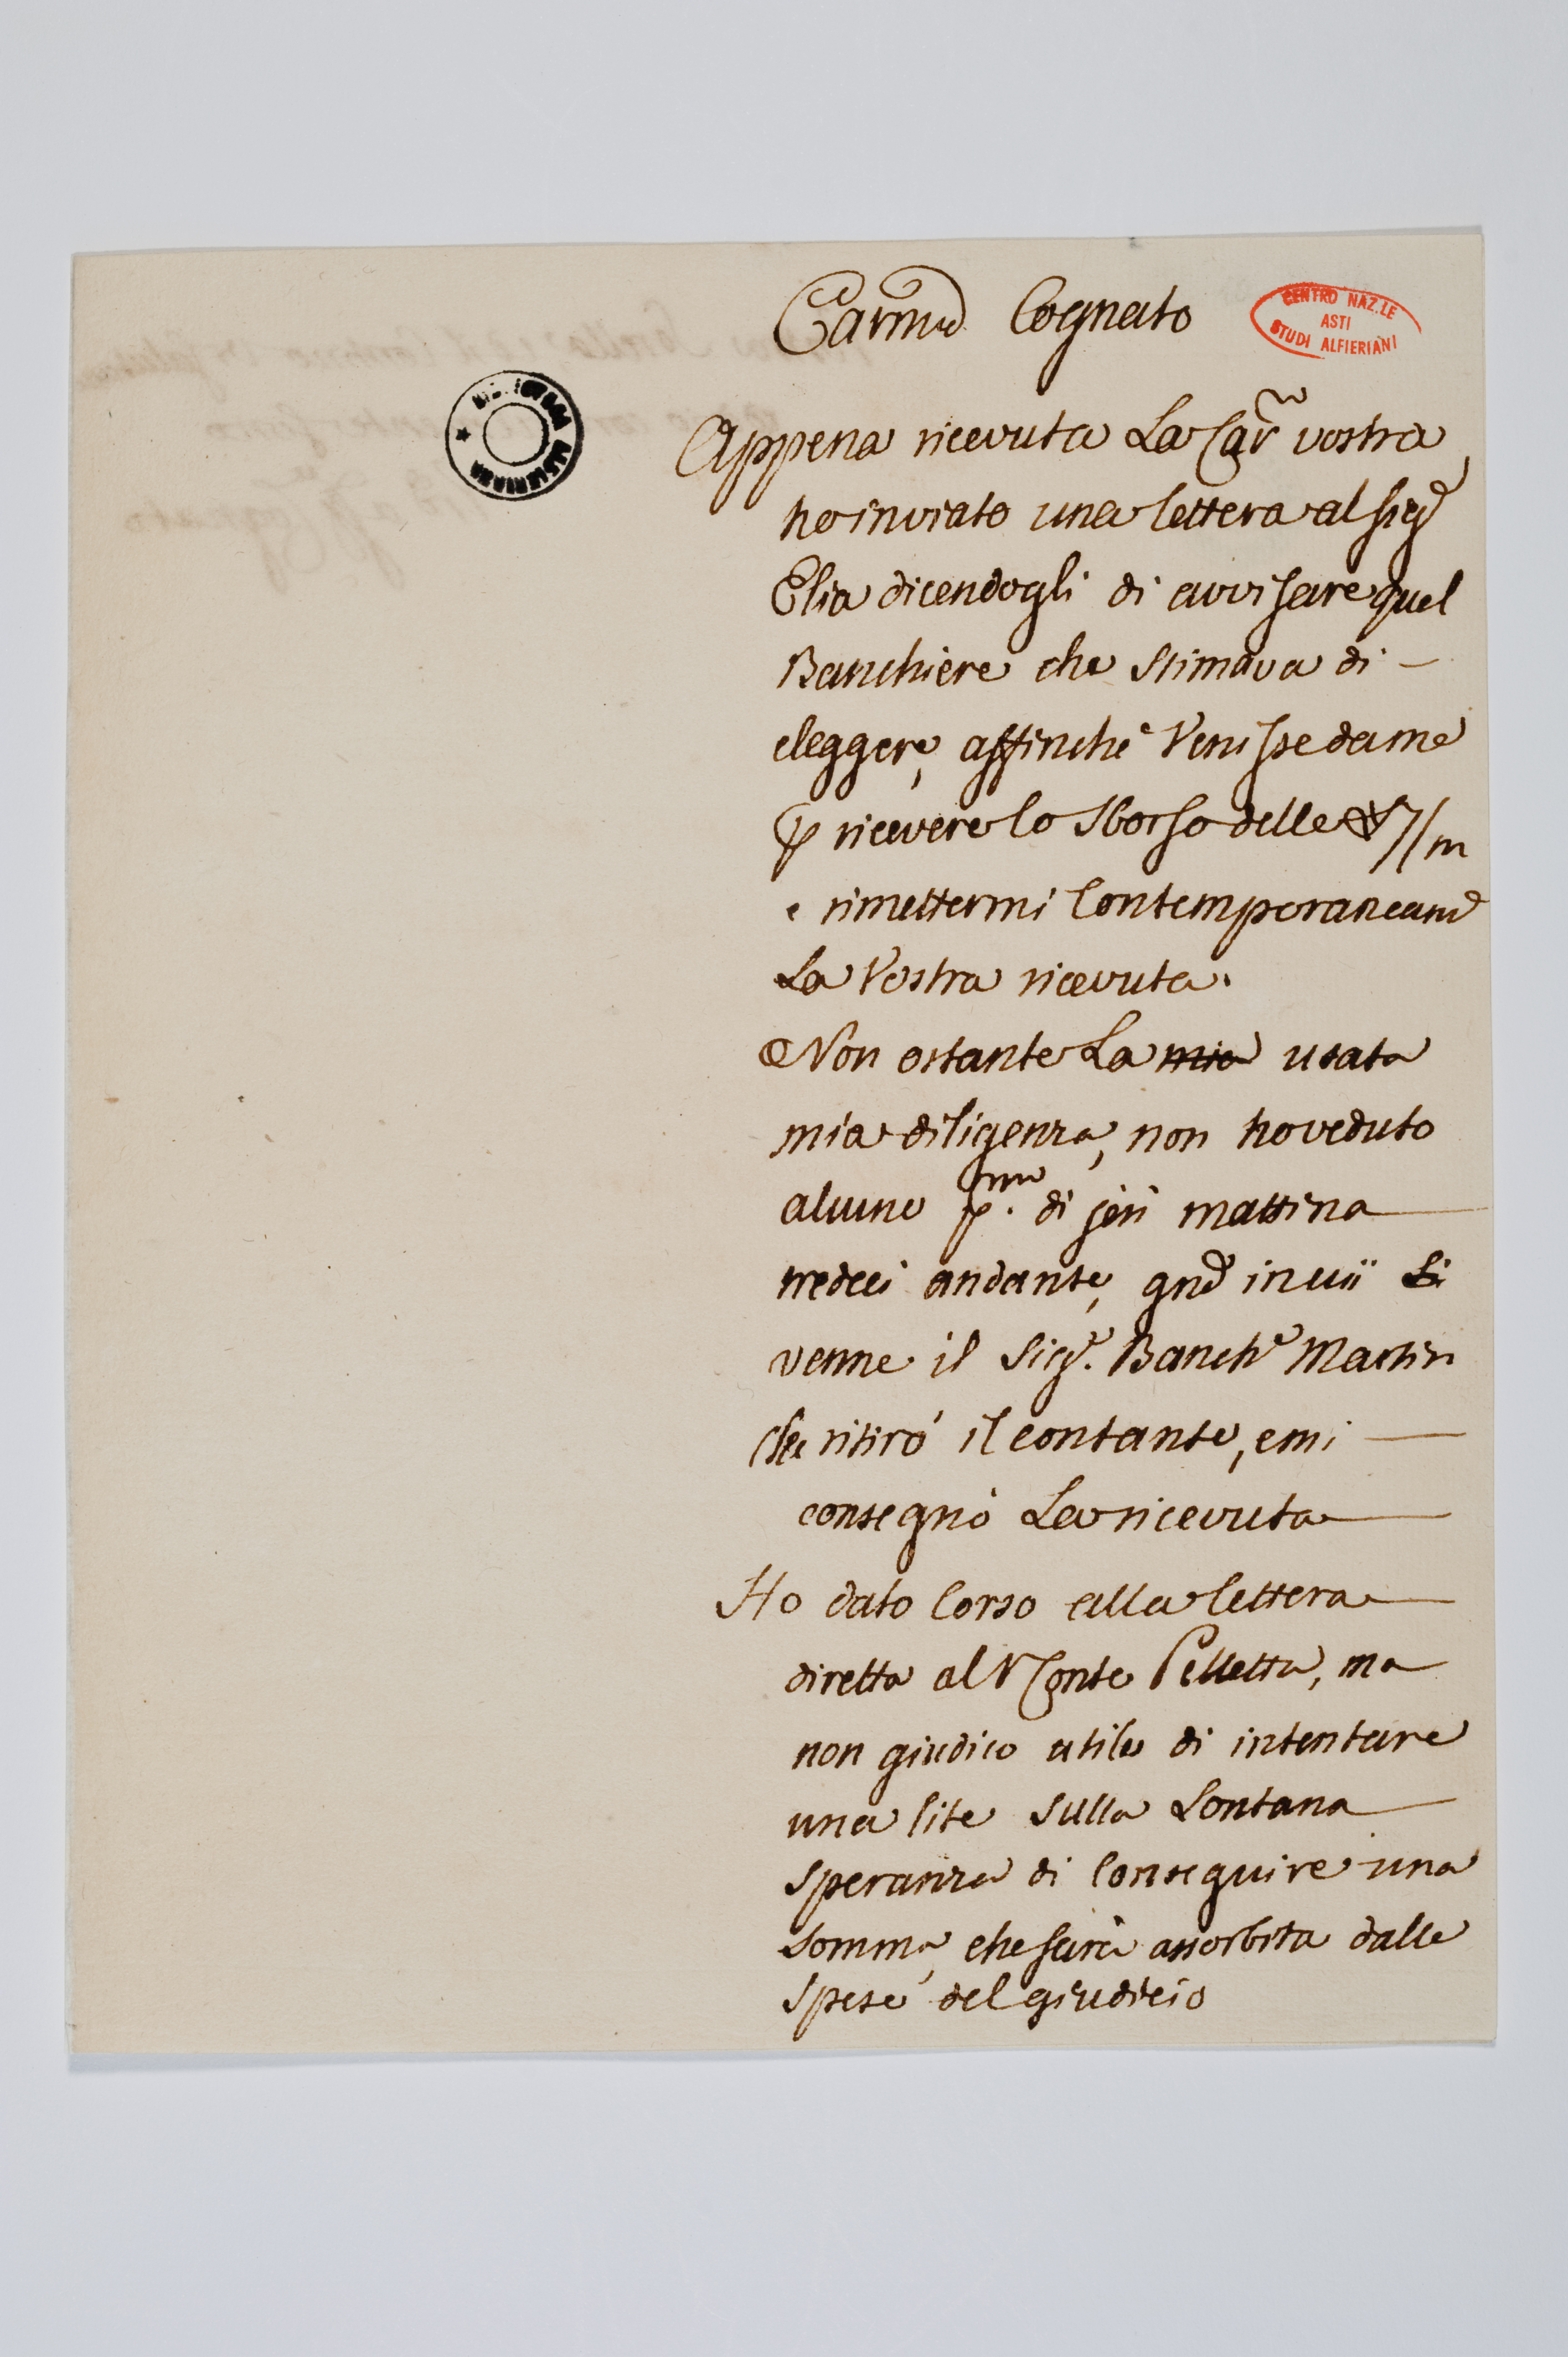 Carmo Cognato
CENTRO NAZ.LE
ASTI
STUDI ALFIERIANI
Appena ricevuta La Car vostra
ho inviato una lettera al Sigr
Elia dicendogli di avvisare quel
Banchiere che stimava di -
eleggere, affinchè Venisse da me
p ricevere lo sborso delle 7/m
e rimettermi Contemporaneame
La Vostra ricevuta.
Non ostante La mia usata
mia diligenza, non ho veduto
alcuno pma. di jeri mattina
tredeci andante, qndo invii Si
venne il Sigr. Banche Martin
che ritirò il contante, e mi
consegnò La ricevuta
Ho dato Corso alla lettera
diretta al Conte Pelletta, ma
non giudico utile di intentare
una lite sulla Lontana
speranza di Conseguire una
somma, che sarà assorbita dalle
spese del giudicio